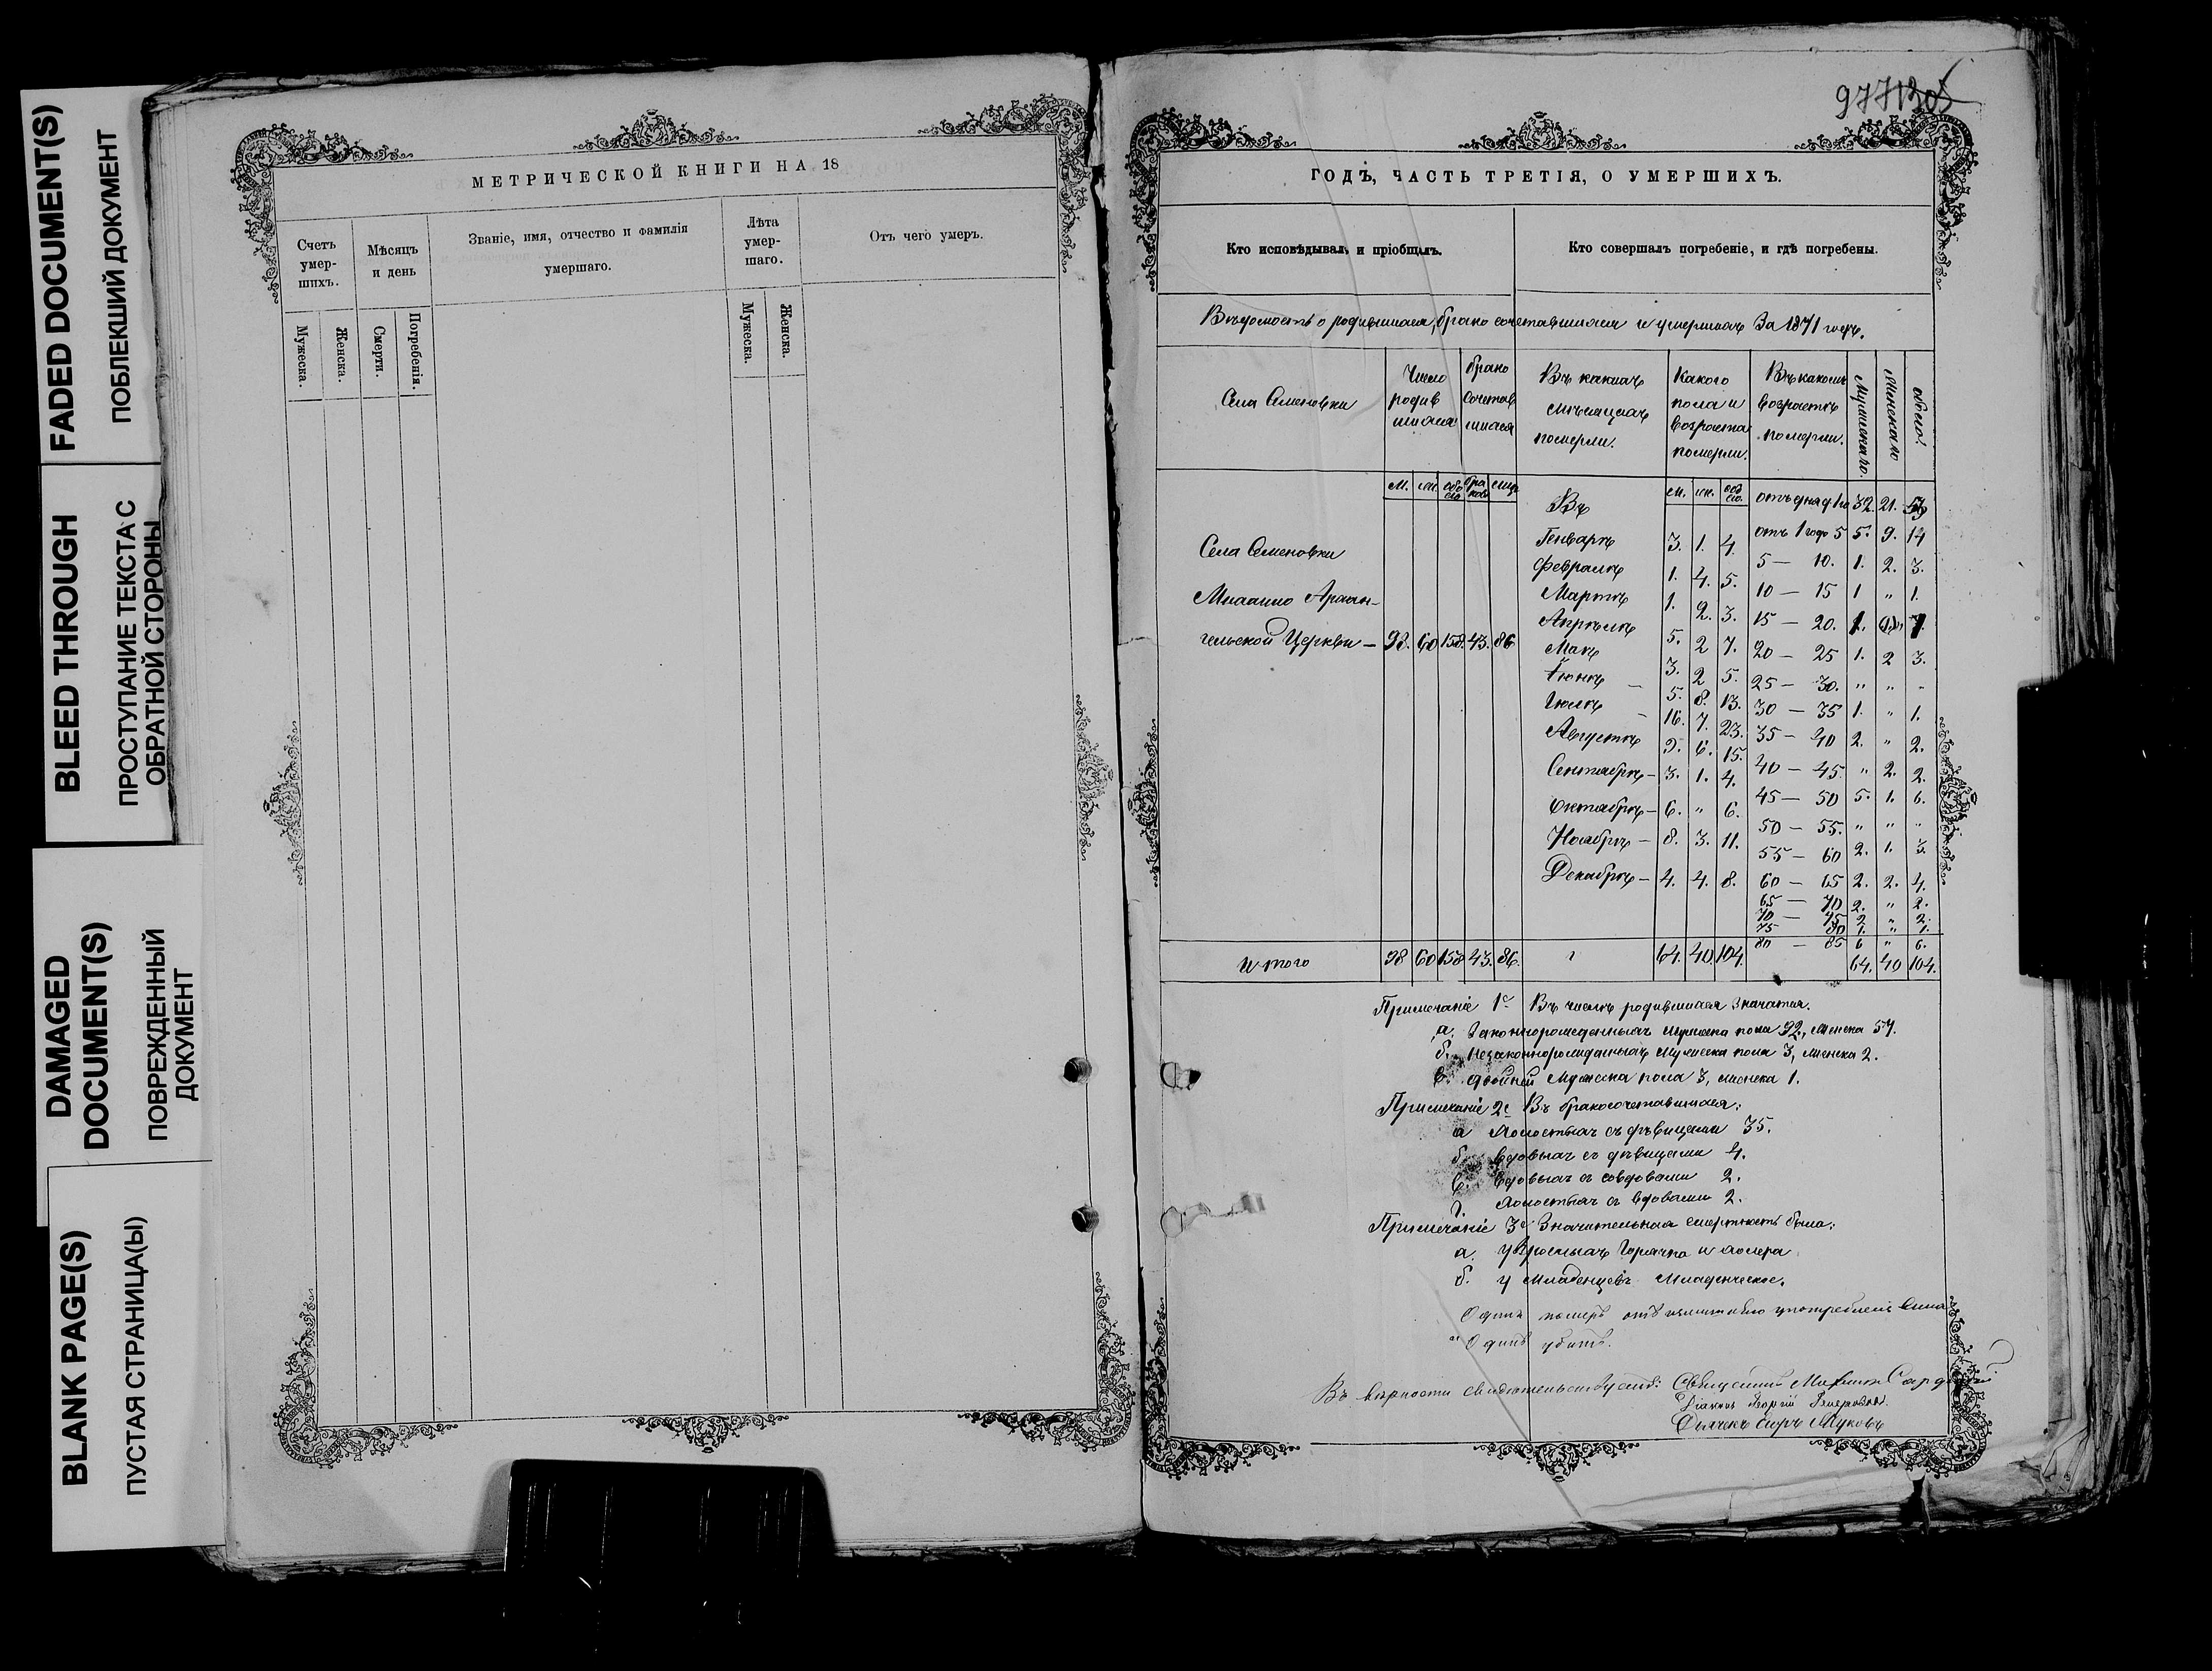 FADED DOCUMENT(S)
ПОБЛЕКШИЙ ДОКУМЕНТ
BLEED THROUGH
ПРОСТУПАНИЕ ТЕКСТА С
ОБРАТНОЙ СТОРОНЫ
DAMAGED
DOCUMENT(S)
ПОВРЕЖДЕННЫЙ
ДОКУМЕНТ
BLANK PAGE(S)
ПУСТАЯ СТРАНИЦА(Ы)
МЕТРИЧЕСКОЙ КНИГИ НА 18
Счетъ
умер-
шихъ.
Мѣсяцъ
и день
Званіе, имя, отчество и фамилія
умершаго.
Лѣта
умер-
шаго.
Отъ чего умеръ.
Мужеска.
Женска.
Смерти.
Погребенія.
Мужеска.
Женска.
977
ГОДЪ, ЧАСТЬ ТРЕТІЯ, О УМЕРШИХЪ.
Кто исповѣдывалъ и пріобщалъ.
Кто совершалъ погребеніе, и гдѣ погребены.
Вѣдомость о родившихся, брако сочетавшихся и умершихъ За 1871 годъ.
Села Семеновки
Число
родив
шихся
брако
сочетав
шихся
Въ какихъ
мѣсяцахъ
померли.
Какого
пола и
возраста
померли.
Въ какомъ
возрастѣ
померли.
Мужескаго.
Женскаго
обоего.
М. жен. обо его бра ковъ лицъ
Въ
м. ж. обо его.
отъ дня д 1го 32. 21. 53
Генварѣ 3. 1. 4. отъ 1 годо 5 5. 9. 14
Села Семеновки
Февралѣ 1. 4. 5. 5 — 10. 1. 2. 3.
Мартѣ 1. 2. 3. 10 — 15 1 " 1.
Михаило Архан-
Апрѣлѣ 5. 2 7. 15 — 20. 1.
гельской Церкви — 98. 60 158. 43. 86
Маѣ 3. 2 5. 20 — 25 1. 2 3.
Іюнѣ — 5. 8. 13. 25 — 30. " " "
Іюлѣ — 16. 7. 23. 30 — 35 1. " 1.
Августѣ 9. 6. 15. 35 — 40 2. " 2.
Сентябрѣ — 3. 1. 4. 40 — 45. " 2. 2.
Октябрѣ — 6. " 6. 45 — 50 5. 1. 6.
50 — 55. " " "
Ноябрѣ — 8. 3. 11. 55 — 60 2. 1. 3.
Декабрѣ — 4. 4. 8. 60 — 65 2. 2. 4.
65 — 70 2. " 2.
70 — 75 2. " 2.
75 80 1. " 1.
80 — 85 6 " 6.
Итого 98 60 158 43. 86. 64. 40 104. 64. 40 104.
Примечаніе 1е Въ числѣ родившихся Значатся.
а. Законнорожденныхъ мужеска пола 92, женска 57.
б. Незаконнорожденныхъ мужеска пола 3, женска 2.
в. двойней Мужеска пола 3, женска 1.
Примечаніе 2е Въ бракосочетавшихся:
а Холостыхъ съ дѣвицами 35.
б. вдовыхъ съ дѣвицами 4.
в. вдовыхъ съ вдовами 2.
г. Холостыхъ съ вдовами 2.
Примечаніе 3е Значительная смертность была:
а. у Врослыхъ Горячка и холера.
б. у Младенцевъ Младенческое.
Одинъ померъ отъ излишняго употребленія вина
Одинъ убитъ.
Въ вѣрности свидѣтельствуютъ: Священникъ
Діаконъ Георгій